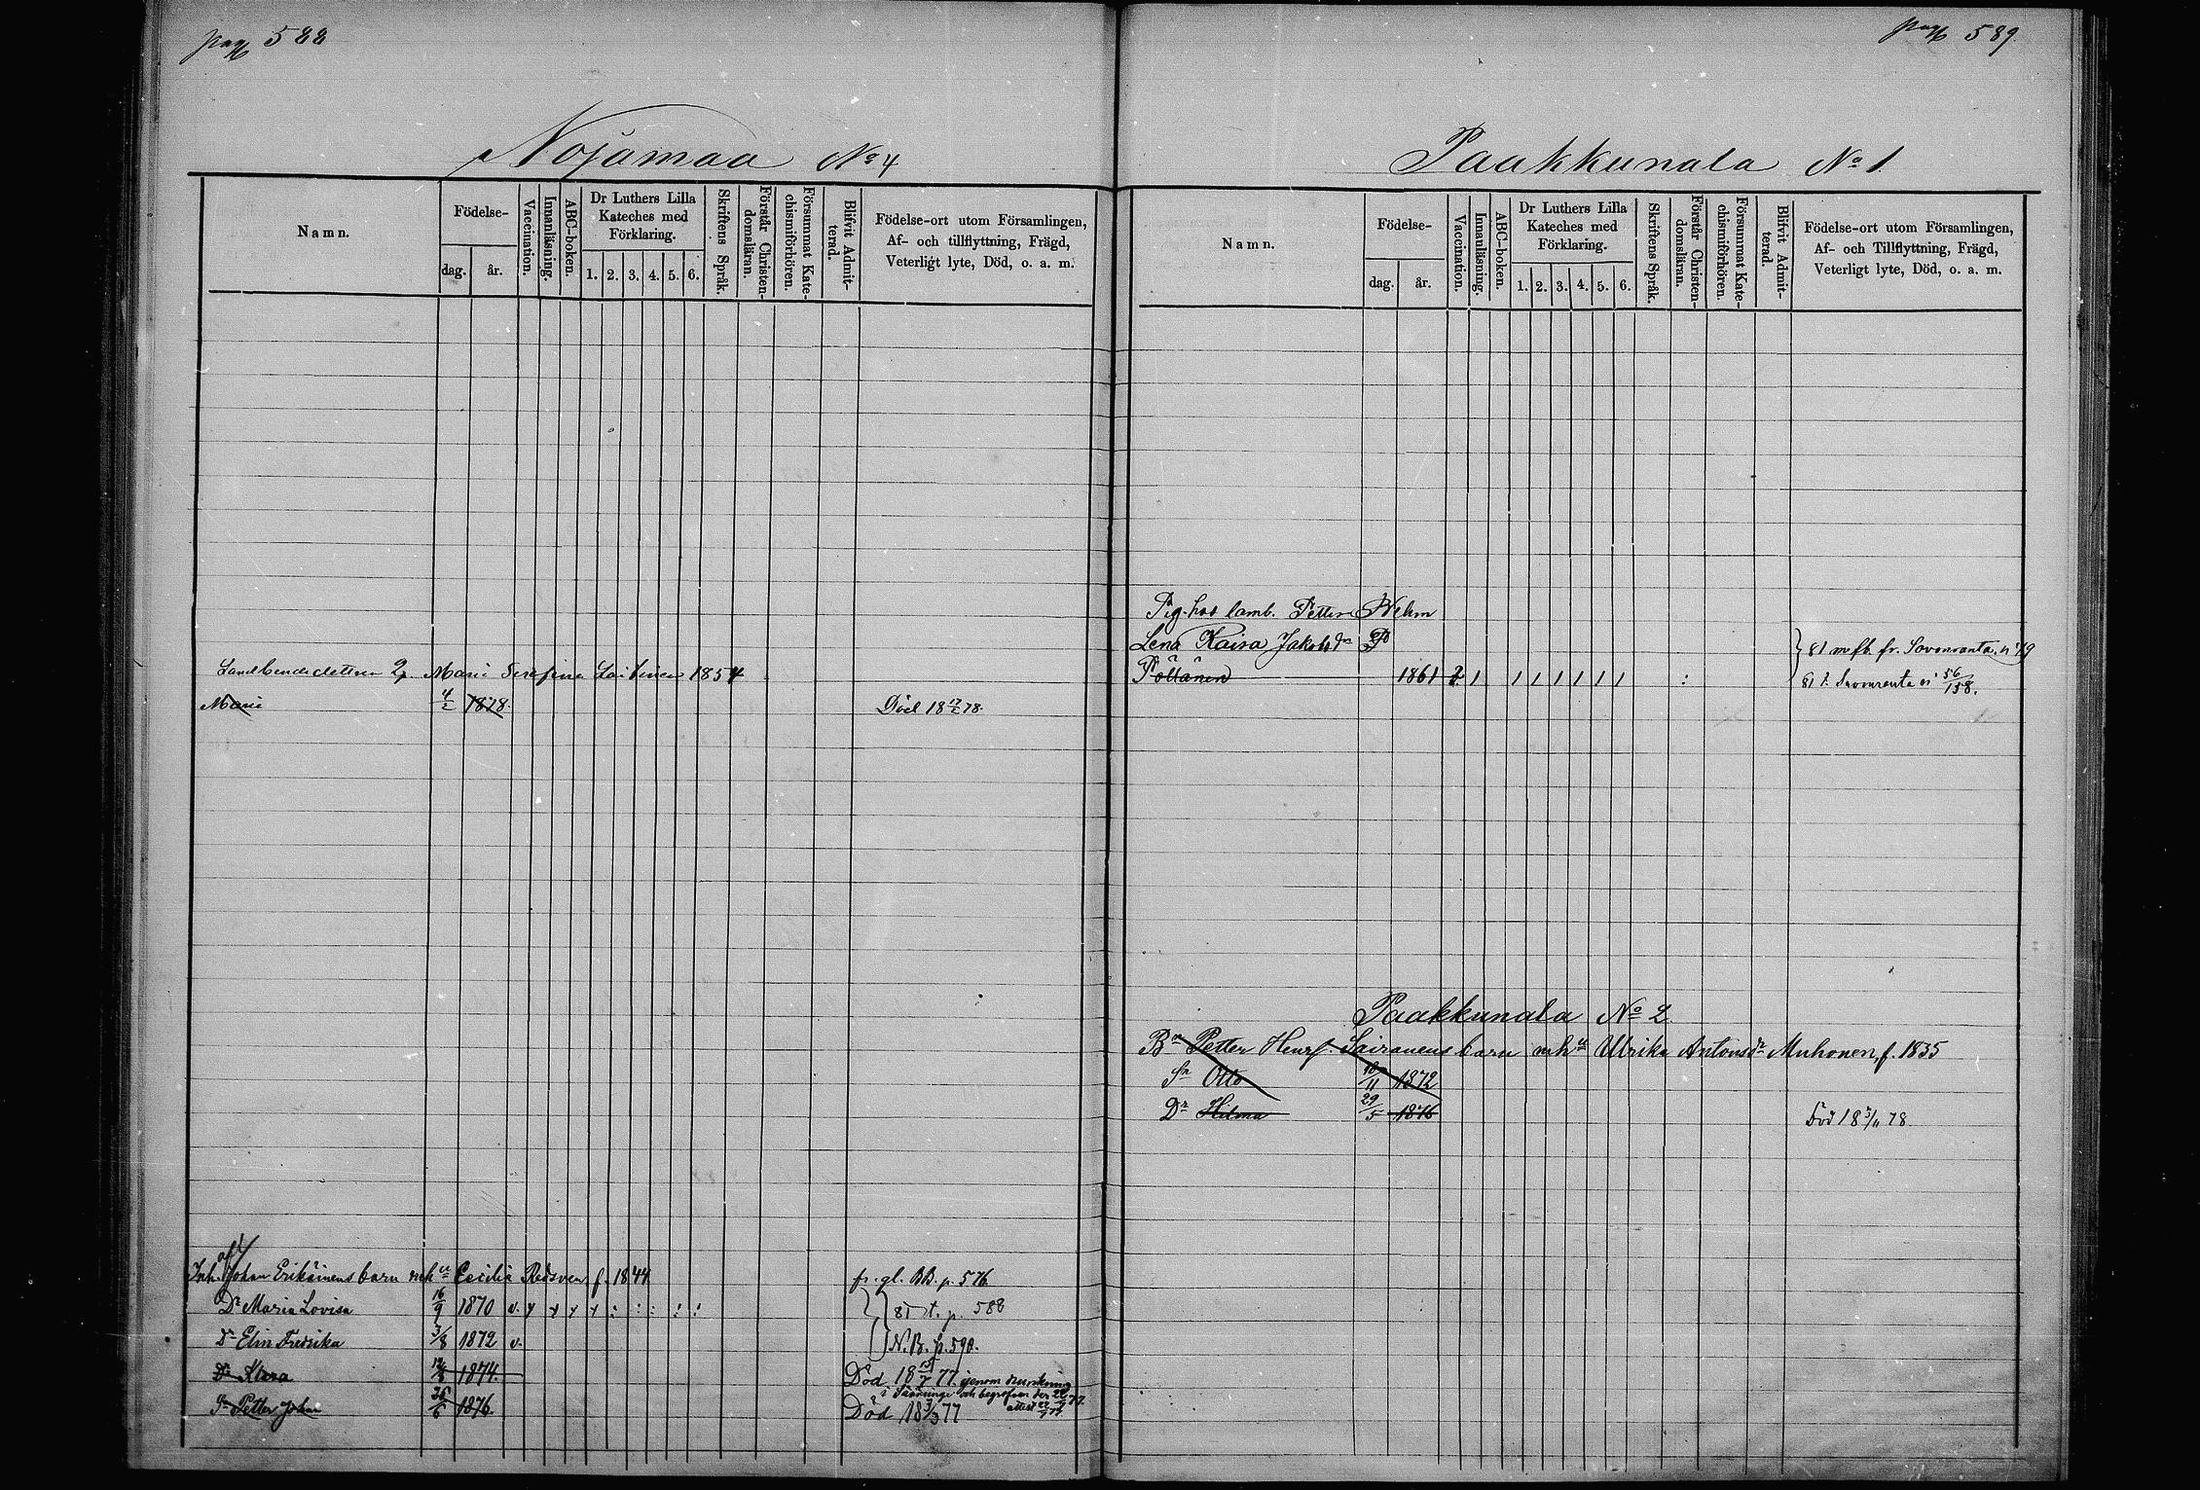 pag 588
Nojamaa No 4
Namn.
Födelse-
dag.
år.
Vaccination.
Innanläsning.
ABC-boken.
Dr Luthers Lilla
Kateches med
Förklaring.
1. 2. 3. 4. 5. 6.
Skriftens Språk.
Förstår Christen-
domsläran.
Försummat Kate-
chismiförhören.
Blifvit Admit-
terad.
Födelse-ort utom Församlingen,
Af- och tillflyttning, Frägd,
Veterligt lyte, Död, o. a. m.
Maria Serefina Laitinen 1854
Maria 4/2 1878. Död 18 17/2 78.
Inh. Johan Erikäinens barn mh Cecilia Redsven f. 1844 fr. gl. BB. p. 576
Dr Maria Lovisa 16/9 1870 v. 81 t. p. 588
Dr Elin Fredrika 3/8 1872 v. N.B. p. 590.
Dr Klara 1874. Död 18 15/7 77. genom drunkning
i Sääminge och begrafven den
Sn Petter Johan 26/6 1876. Död 18 3/3 77
pag 589
Paakkunala No 1.
Namn.
Födelse-
dag.
år.
Vaccination.
Innanläsning.
ABC-boken.
Dr Luthers Lilla
Kateches med
Förklaring.
1. 2. 3. 4. 5. 6.
Skriftens Språk.
Förstår Christen-
domsläran.
Försummat Kate-
chismiförhören.
Blifvit Admit-
terad.
Födelse-ort utom Församlingen,
Af- och Tillflyttning, Frägd,
Veterligt lyte, Död, o. a. m.
Pig. hos lamb. Petter
Lena Kaisa Jakobsdr 81 m fb. fr. Savonranta, n:19
Pöllänen 1861 81 t. Savonranta n: 56/158.
Paakkunala No 2
Bn Petter Henr. Sairanens barn mh Ulrika Antonsdr Muhonen, f. 1835
Sn Otto 10/11 1872
Dr Hilma 29/5 1876 Död 18 3/11 78.